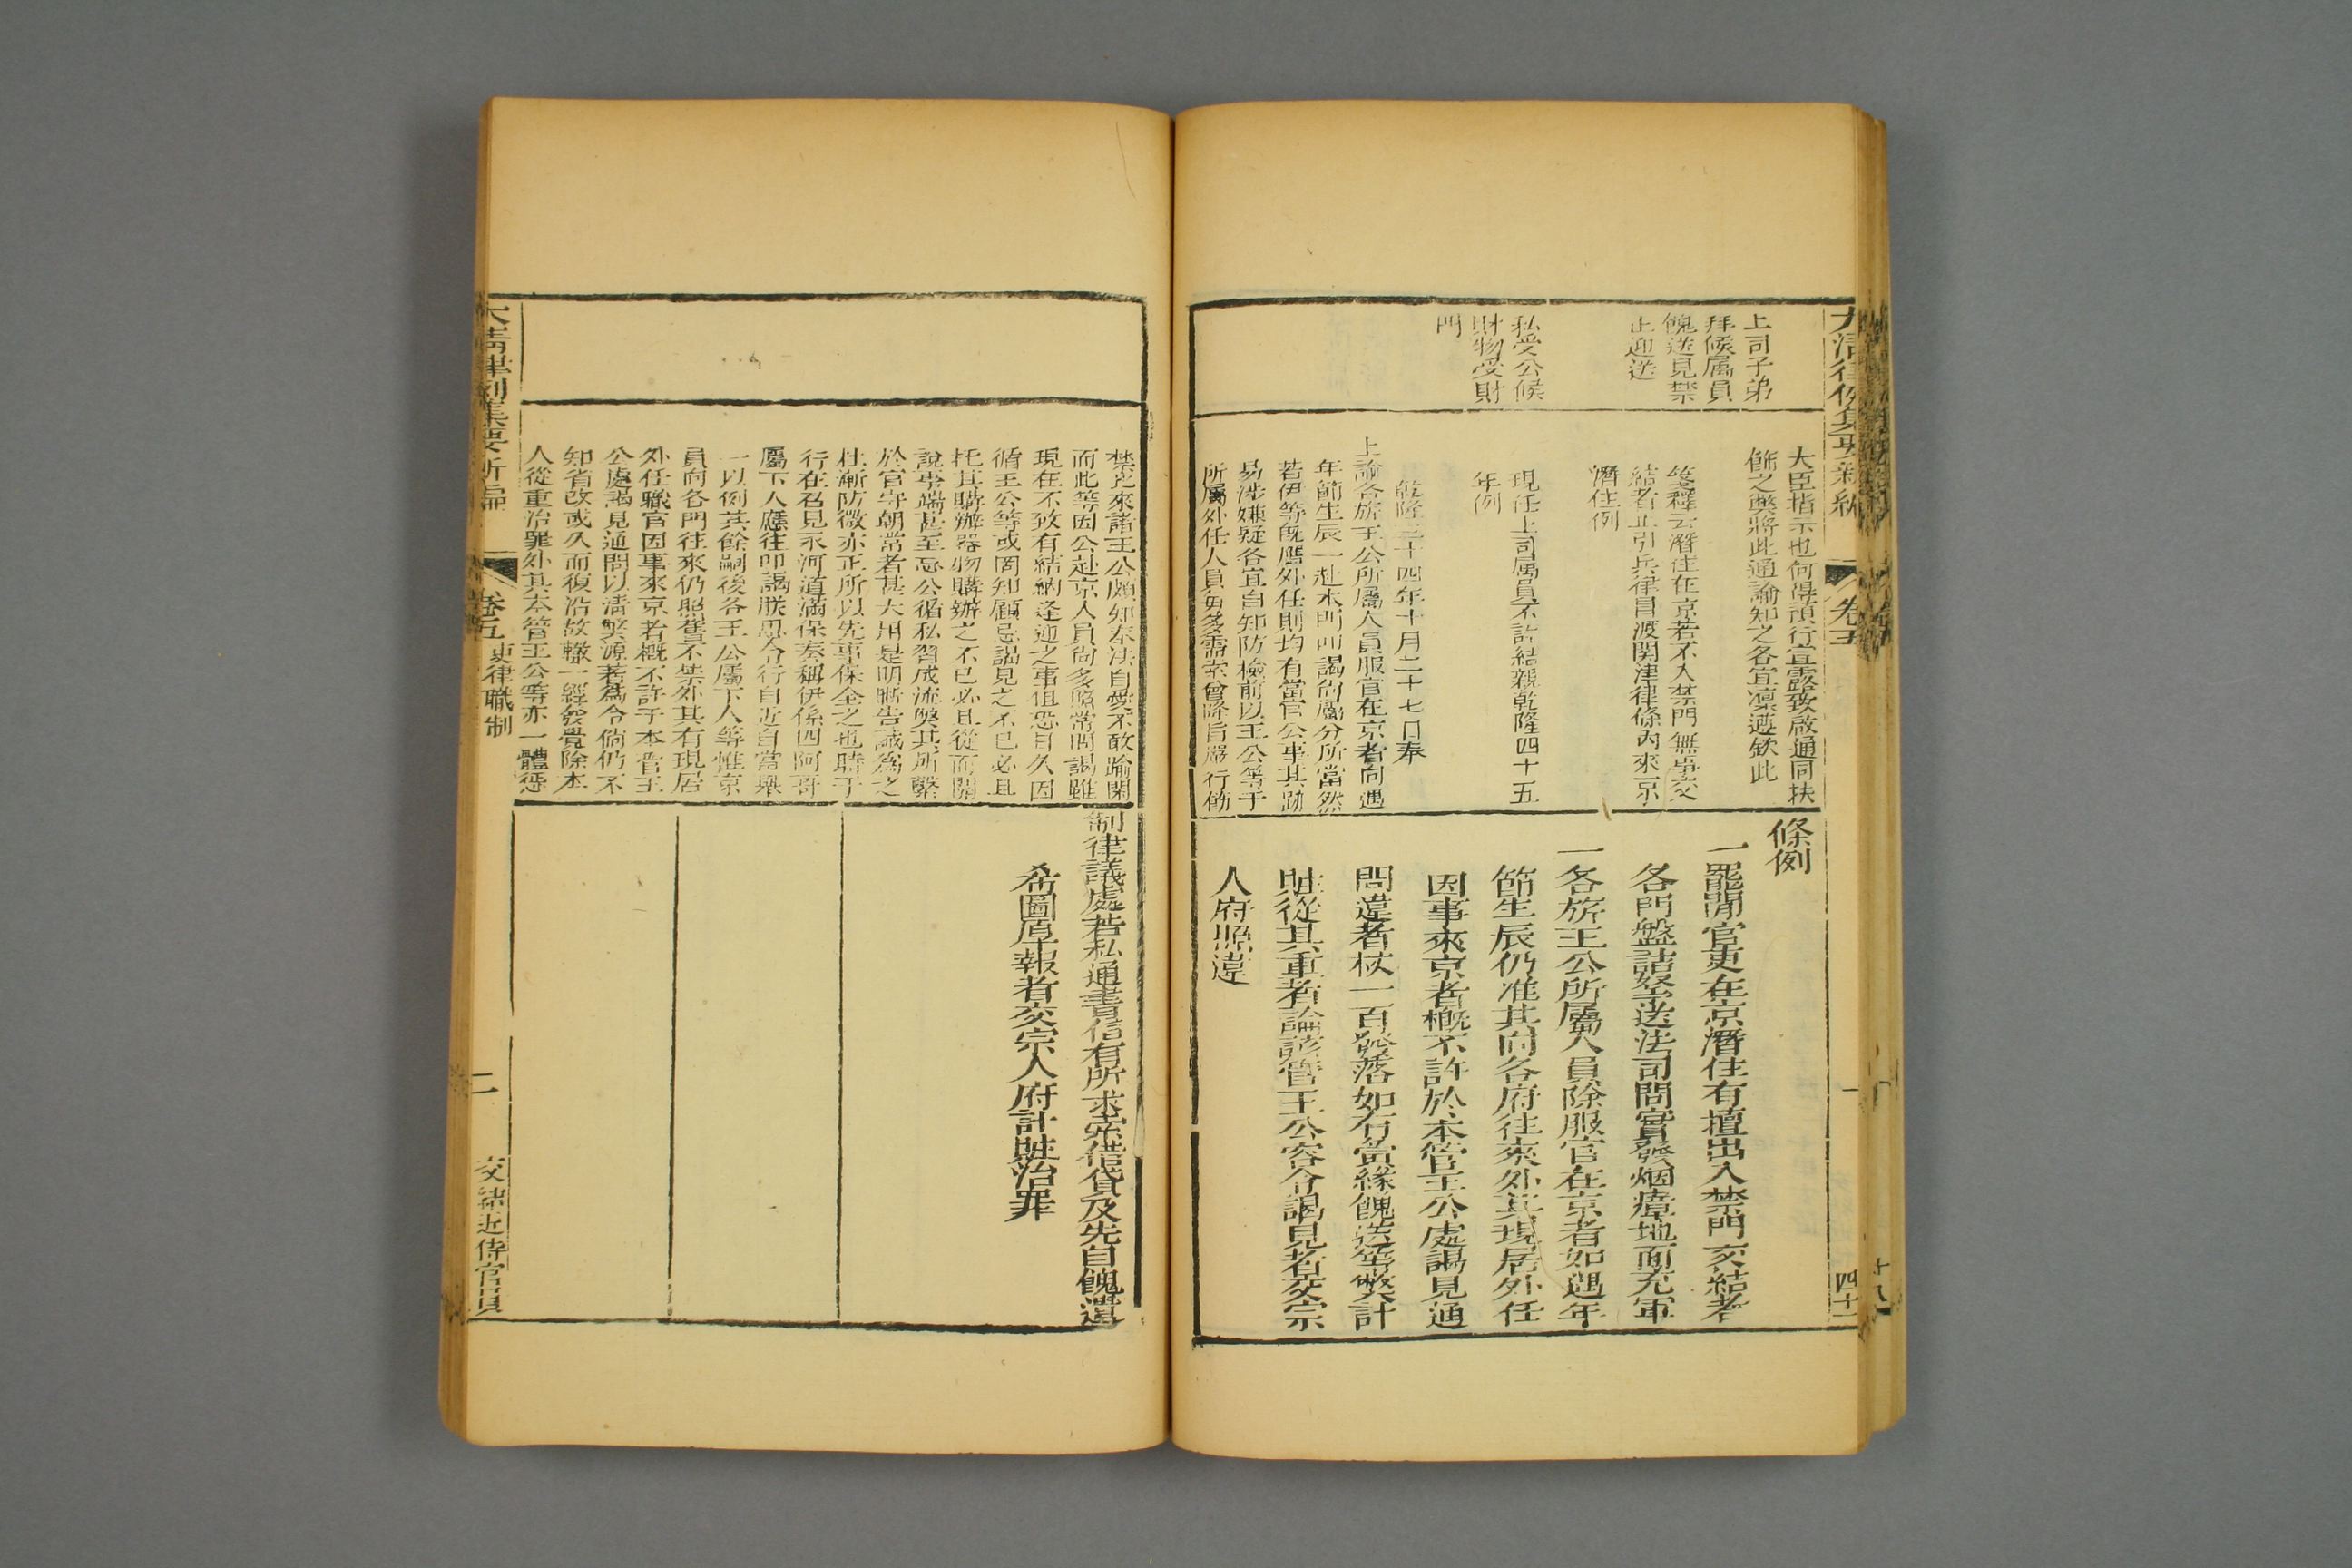 大清律例集要新編
卷五
四十二
上司子弟
拜候屬員
餽送見禁
止迎送
私受公候
財物受財
門
大臣指示也何得預行宣露致啟通同扶
飾之弊將此通諭知之各宜凜遵欽此
箋釋云潛住在京若不入禁門無事交
結者止引兵律自渡関津律條內來京
潛住例
現任上司属員不許結親乾隆四十五
年例
乾隆三十四年十月二十七日奉
上諭各旗王公所屬人員服官在京者向遇
年節生辰一赴本門叩謁尚屬分所當然
若伊等既膺外任則均有當官公事其跡
易涉嫌疑各宜自知防檢前以王公等于
所屬外任人員每多需索曾降旨嚴行飭
條例
一罷閒官吏在京潛住有擅出入禁門交結者
各門盤詰拏送法司問實發烟瘴地面充軍
一各旗王公所屬人員除服官在京者如遇年
節生辰仍准其向各府往來外其現居外任
因事來京者概不許於本管王公處謁見通
問違者杖一百發落如有夤緣餽送等弊計
賍從其重者論該管王公容令謁見者交宗
人府照違
禁比來諸王公頗知奉法自愛不敢踰閑
而此等因公赴京人員尚多照常問謁雖
現在不致有結納逢迎之事但恐日久因
循王公等或罔知顧忌謁見之不已必且
托其購辦器物購辦之不已必且從而關
說事端甚至忘公循私習成流獘其所繫
於官守朝常者甚大用是明晰告誡為之
杜漸防微亦正所以先事保全之也時于
行在召見永河道滿保奏稱伊係四阿哥
屬下人應往叩謁朕思令行自近自當舉
一以例其餘嗣後各王公屬下人等惟京
員向各門往來仍照舊不禁外其有現居
外任職官因事來京者概不許于本管王
公處謁見通問以清獘源著為令倘仍不
知省改或久而復沿故轍一經發覺除本
人從重治罪外其本管王公等亦一體懲
制律議處若私通書信有所求索借貸及先自餽遺
希圖厚報者交宗人府計賍治罪
大清律例集要新編
卷五
吏律職制
二
交結近侍官員